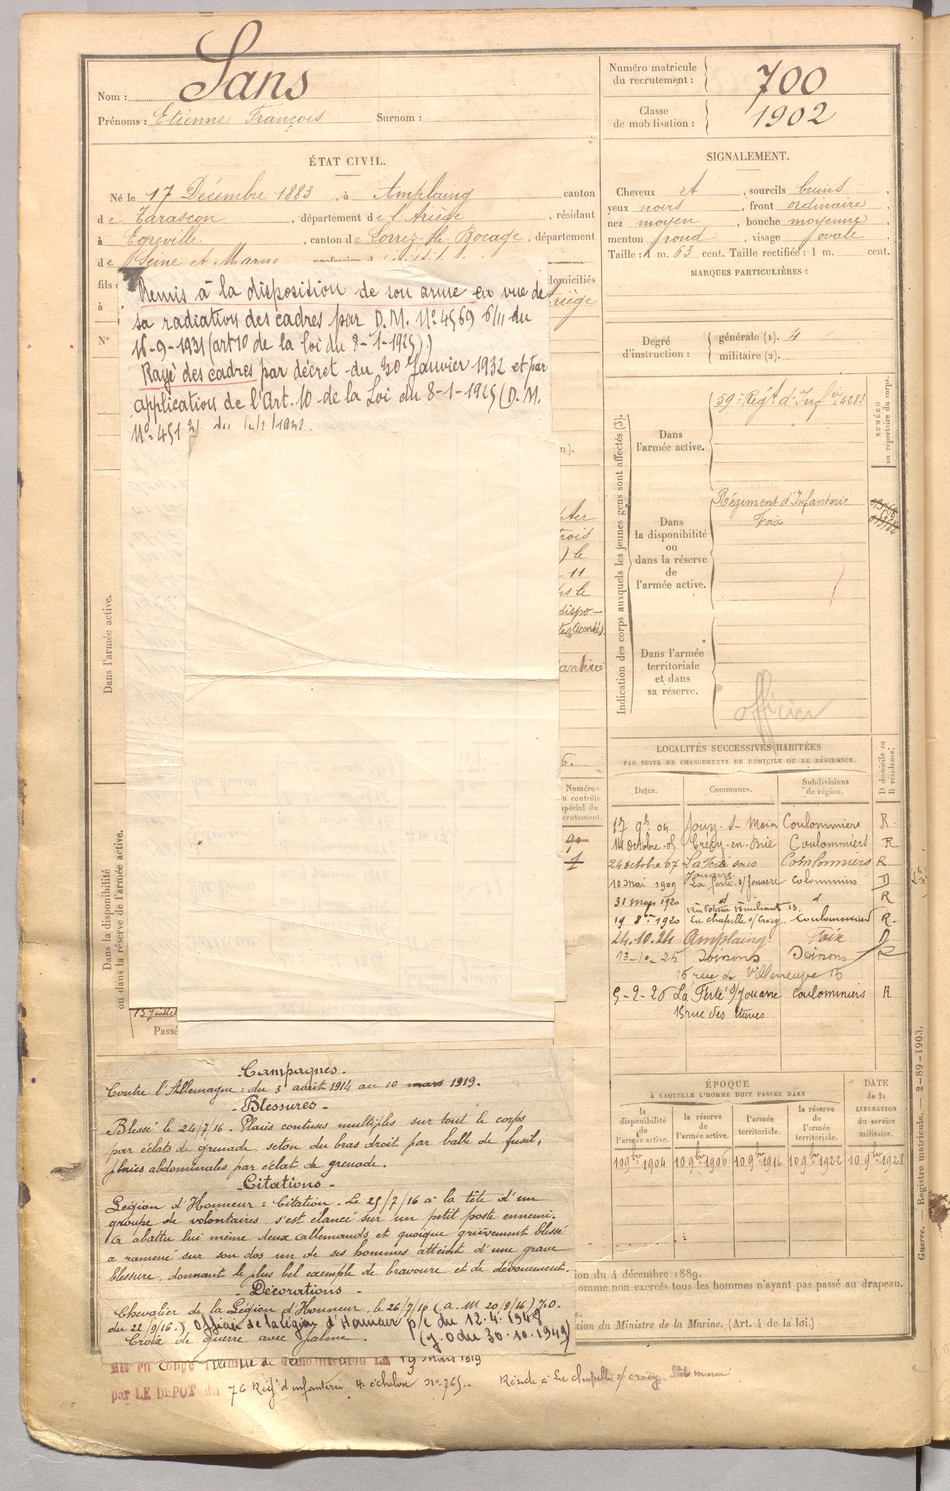 Nom : Sans
Prénoms : Etienne François Surnom :
Numéro matricule
du recrutement : 700
Classe
de mobilisation : 1902
ÉTAT CIVIL.
Né le 17 Décembre 1883, à Amplaing canton
de Tarascon, département de l'Ariège, résidant
à Egreville, canton de Lorrez-le-Bocage, département
de Seine et Marne profession
fils
domiciliés
à
Ariège
N°
SIGNALEMENT.
Cheveux et, sourcils bruns,
yeux noirs, front ordinaire,
nez moyen, bouche moyenne
menton rond, visage ovale
Taille : 1 m. 63 cent. Taille rectifiée : 1 m. cent.
MARQUES PARTICULIÈRES :
Degré
d'instruction :
générale (1). 4
militaire (2).
Remis à la disposition de son arme en vue de
sa radiation des cadres par D.M. N° 4569 6/11 du
16-9-1931 (art 10 de la loi du 8-1-1925)
Rayé des cadres par décret du 20 Janvier 1932 et par
application de l'Art. 10 de la Loi du 8-1-1925 (D.M.
N° 451
Indication des corps auxquels les jeunes gens sont affectés (3).
NUMÉRO
au répertoire du corps.
Dans
l'armée active.
59e Régt d'Infie 4283
Dans
la disponibilité
ou
dans la réserve
de
l'armée active.
Régiment d'Infanterie
Foix
Dans l'armée
territoriale
et dans
sa réserve.
officier
Dans l'armée active.
Dans la disponibilité
ou dans la réserve de l'armée active.
trois
le
11
dispo-
Numéro
au contrôle
spécial du
recrutement.
13 Juillet
Passé
LOCALITÉS SUCCESSIVES HABITÉES
PAR SUITE DE CHANGEMENTS DE DOMICILE OU DE RÉSIDENCE.
D domicile ou
R résidence.
Dates. Communes. Subdivisions
de région.
17 9bre 04 Jouy-s-Morin Coulommiers R
14 octobre 05 Crécy-en-Brie Coulommiers R
24 octobre 07 La Ferté sous Jouarre Coulommiers R
10 mai 1909 La Ferté s/Jouarre Coulommiers D
31 mars 1920 d° d° R
19 8bre 1920 La chapelle s/Crécy Coulommiers R.
24.10.24 Amplaing Foix D
13-10-25 Soissons Soissons R
15 rue de Villeneuve 15
5-2-26 La Ferté s/Jouarre Coulommiers R
15 rue des
ÉPOQUE
À LAQUELLE L'HOMME DOIT PASSER DANS
DATE
de la
LIBÉRATION
du service
militaire.
la
disponibilité
de
l'armée active.
la réserve
de
l'armée active.
l'armée
territoriale.
la réserve
de l'armée
territoriale.
10 9bre 1904 10 9bre 1906 10 9bre 1916 10 9bre 1922 10 9bre 1928
Campagnes.
Contre l'Allemagne : du 3 août 1914 au 10 mars 1919.
- Blessures -
Blessé le 24/7/16. Plaies contuses multiples sur tout le corps
par éclats de grenade, seton du bras droit par balle de fusil,
plaies abdominales par éclat de grenade.
- Citations -
Légion d'Honneur : Citation. Le 25/7/16 à la tête d'un
groupe de volontaires s'est élancé sur un petit poste ennemi.
a abattu lui même deux allemands et quoique grièvement blessé
a ramené sur son dos un de ses hommes atteint d'une grave
blessure, donnant le plus bel exemple de bravoure et de dévouement.
- Décorations -
Chevalier de la Légion d'Honneur, le 26/7/16 (a. M 20/8/16) J.O.
du 22/9/16.) Officier de la Légion d'Honneur p/c du 12.4.1948
Croix de guerre avec palme. (J.O du 30.10.1949)
ion du 4 décembre 1889.
omme non exercés tous les hommes n'ayant pas passé au drapeau.
sion du Ministre de la Marine. (Art. 4 de la loi.)
Mis en Congé illimité de démobilisation LE 19 Mars 1919
par LE DEPOT du 76 Régt d'infanterie 4e échelon N° 765. Réside à La chapelle s/ Crécy
Guerre. — Registre matricule. — 2-89-1903.